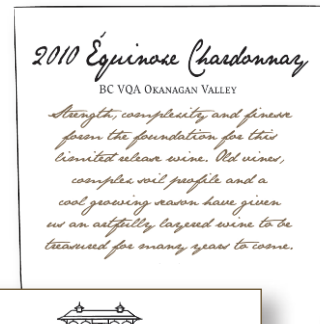 2010 Équinoxe Chardonnay
BC VQA Okanagan Valley
Strength, complexity and finesse
form the foundation for this
limited release wine. Old vines,
complex soil profile and a
cool growing season have given
us an artfully layered wine to be
treasured for many years to come.